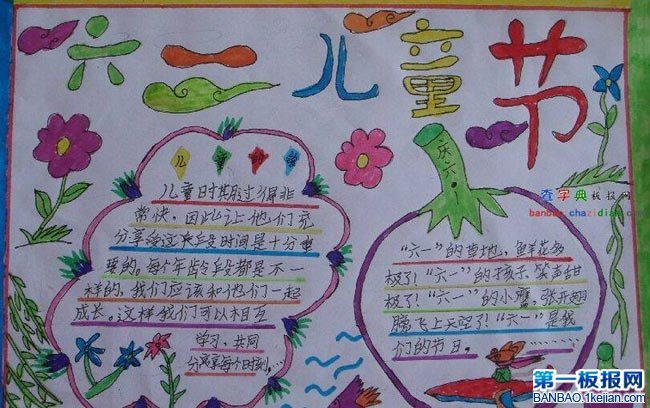 六一儿童节
儿童时刻
儿童时其月过得非
常快，因此让他们充
分享受这末段时间是十分重
要的。每个年龄段都是不一
样的，我们应该和他们一起
成长。这样我们可以相互
学习、共同
分享每个时刻……
庆六一
“六一”的草地，鲜花多
极了！“六一”的孩子，笑声甜
极了！“六一”的小鹰，张开翅
膀飞上天空了！“六一”是我
们的节日。………
查字典板报网
banbao.chazidian.com
第一板报网
BANBAO.1kejian.com